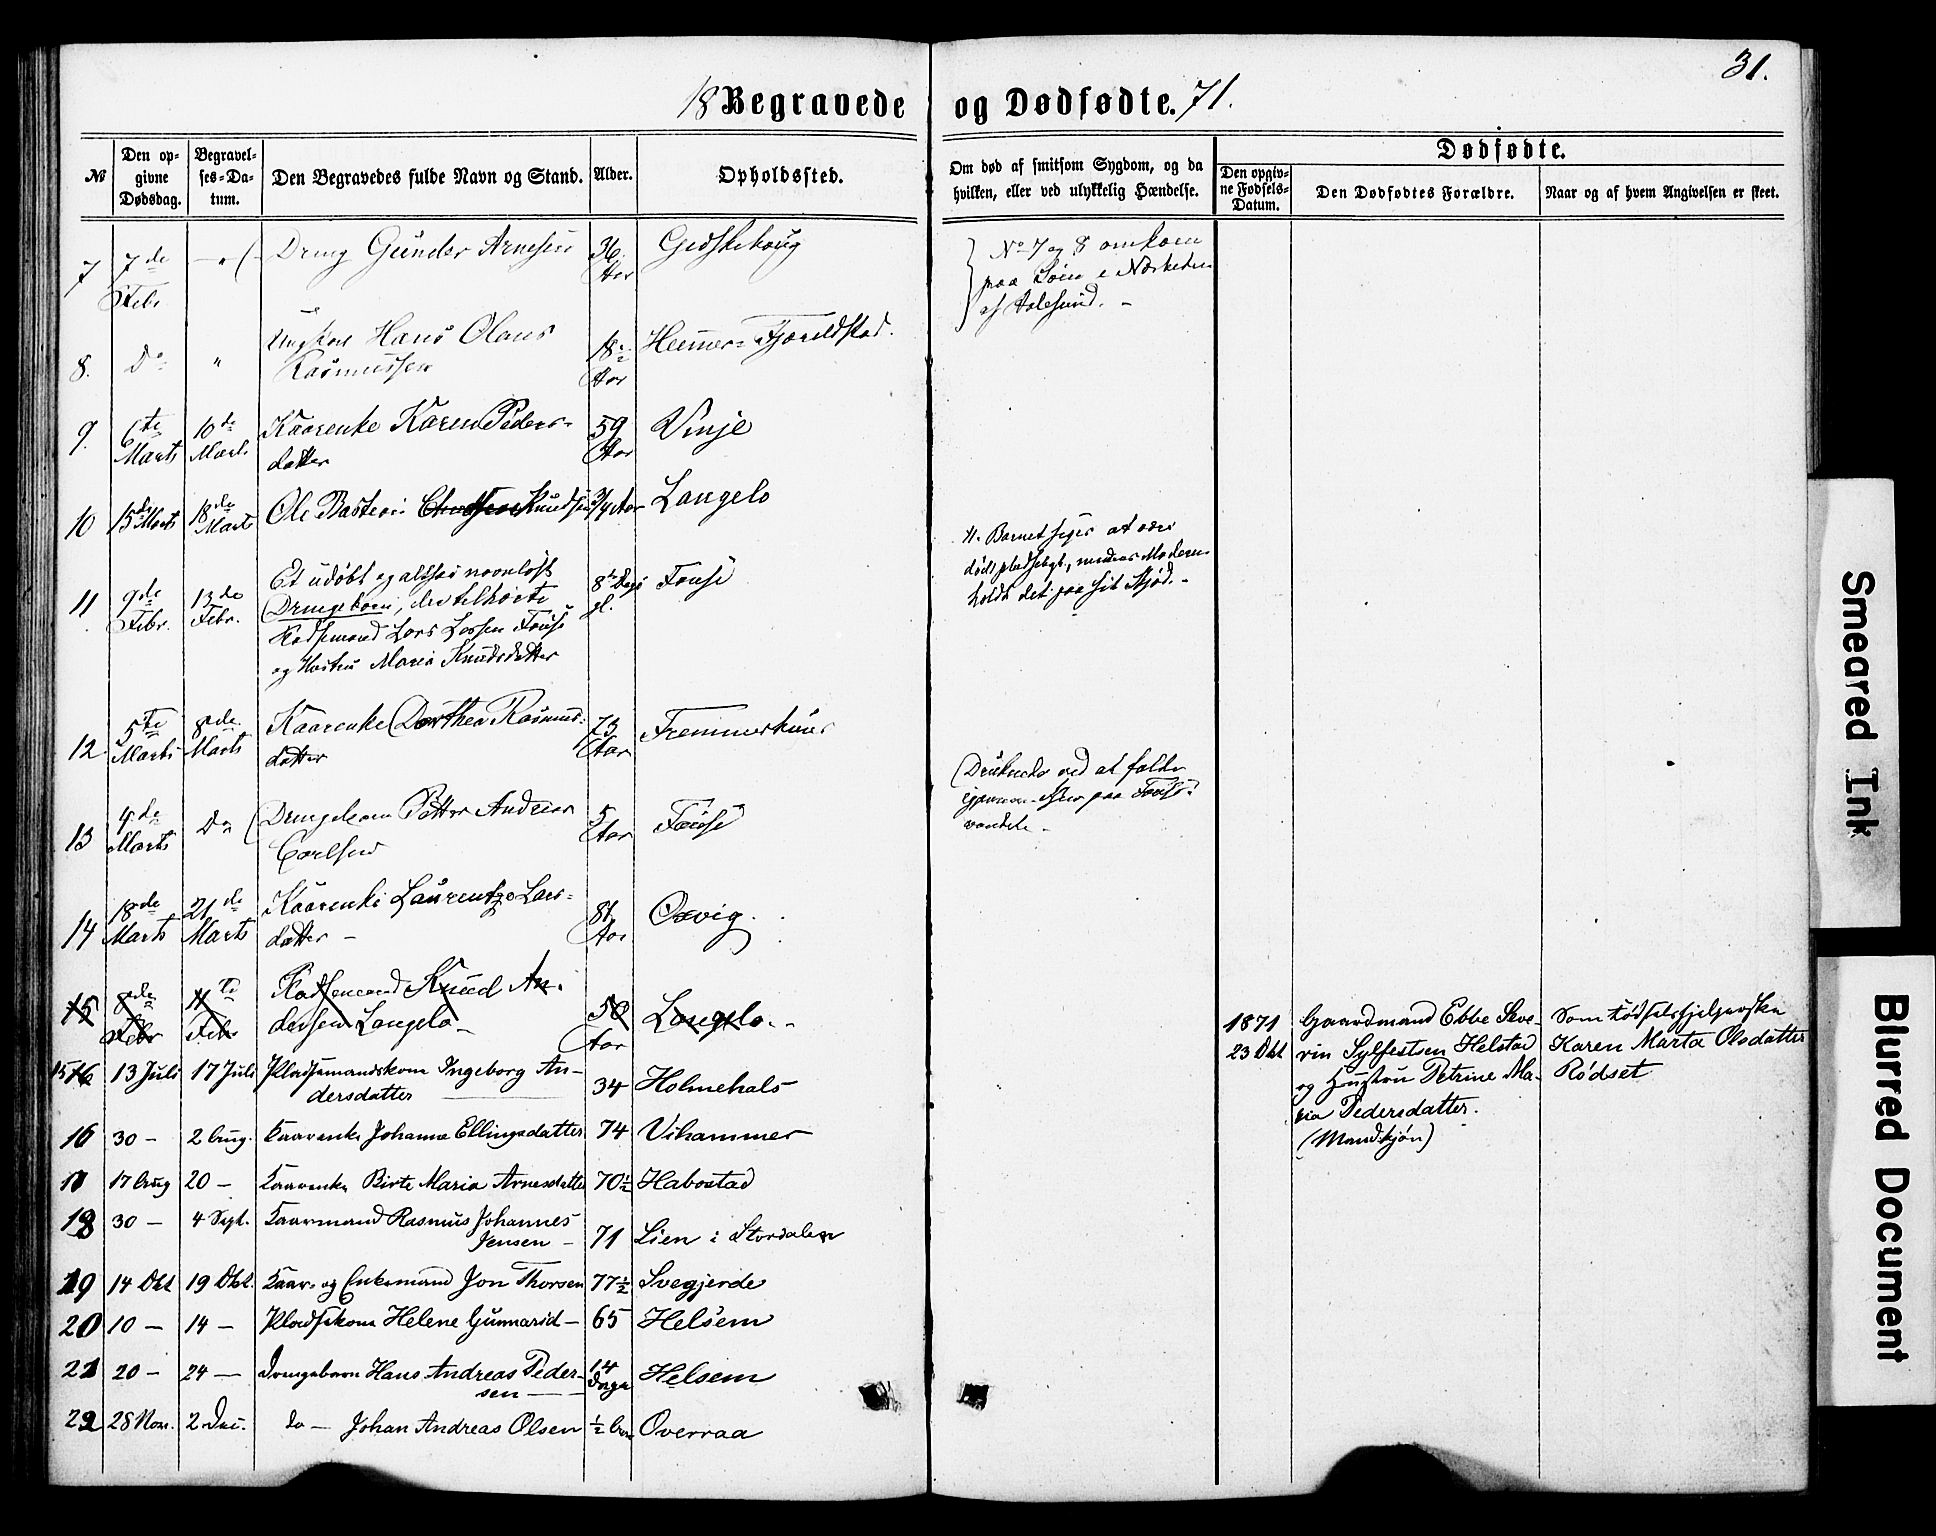 31.
18 Begravede og Dødfødte. 71.
№
Den opgivne Dødsdag.
Begravelses-Datum.
Den Begravedes fulde Navn og Stand.
Alder.
Opholdssted.
Om død af smitsom Sygdom, og da
hvilken, eller ved ulykkelig Hændelse.
Dødfødte.
Den opgivne Fødsels-Datum.
Den Dødfødtes Forældre.
Naar og af hvem Angivelsen er skeet.
7 7de Febr — " — Dreng Gunder Arnesen 36 Aar Gedskehaug
No 7 og 8 omkom
paa Søen i Nærheden
af Aalesund. -
8. Do " Ungkarl Hans Olaus
Rasmussen 18 Aar Hemmer-Fjæreldstad.
9. 6te Marts 10de Marts Kaarenke Karen Peders-
datter 59 Aar Vinje
10 15de Marts 18de Marts Ole Bastian Knudsen 3/4 Aar Langelo
11 9de Febr. 13de Febr. Et udøbt og altsaa navnløst
Drengebarn, der tilhørte
Pladsemand Lars Larsen Fause
og Hustru Maria Knudsdatter
8te Dage gl. Fause
11. Barnet siges at være
død pludseligt, medens Moderen
holdt det paa sit Skjød. -
12 5te Marts 8de Marts Kaarenke Dorthea Rasmus-
datter 73 Aar Fremmerhuus
13 4de Marts Do Drengebarn Petter Andreas
Carlsen 5 Aar Fause
Druknede ved at falde
igjennem Isen paa Fause-
vandet -
14 18de Marts 21de Marts Kaarenke Laurentze Lars-
datter - 81 Aar Oxvig.
15 8de Febr 11te Febr Pladsemand Knud An-
dersen Langelo - 50 Aar Langelo. -
15 16 13 Juli 17 Juli Pladsemandskone Ingeborg An-
dersdatter 34 Holmehals
16 30 - 2 Aug. Kaarenke Johanne Ellingsdatter 74 Vihammer
17 17 Aug 20 - Kaarenke Birte Maria Arnesdatter 70½ Habostad
18 30 - 4 Sept. Kaarmand Rasmus Johannes
Jensen - 71 Lien i Stordalen
19 14 Okt 19 Okt. Kaar- og Enkemand Jon Thorsen 77½ Svegjerde
20 10 - 14 - Pladsekone Helene Gunnarsd - 65 Helsem
21 20 - 24 - Drengebarn Hans Andreas Peder-
sen 14 Dage Helsem
22 28 Nov. 2 Dec. do - Johan Andreas Olsen ½ Aar Overraa
1871
23 Okt
Gaardmand Ebbe Seve-
rin Sylfestsen Helstad
og Hustru Petrine Ma-
ria Pedersdatter.
(Mandkjøn)
Som Fødselshjelperske
Karen Marta Olsdatter
Rødset
Smeared Ink
Blurred Document